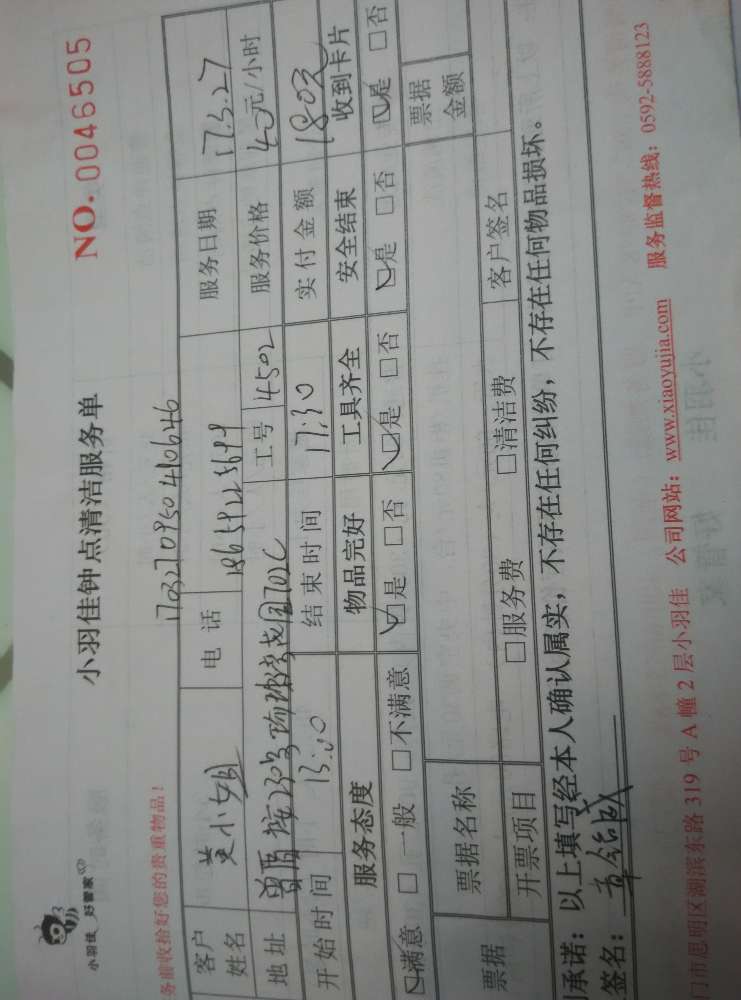 小羽佳 好管家
小羽佳钟点清洁服务单
NO. 0046505
务前收拾好您的贵重物品!
客户姓名 黄小姐 电话 服务日期 17.3.27
地址 工号 4502 服务价格 40元/小时
开始时间 13:00 结束时间 17:30 实付金额 180元
服务态度 物品完好 工具齐全 安全结束 收到卡片
☑满意 □一般 □不满意 ☑是 □否 ☑是 □否 ☑是 □否 ☑是 □否
票据 票据名称 票据金额
开票项目 □服务费 □清洁费 客户签名
承诺:以上填写经本人确认属实,不存在任何纠纷,不存在任何物品损坏。
签名:
门市思明区湖滨东路 319 号 A 幢 2 层小羽佳 公司网站:www.xiaoyujia.com 服务监督热线:0592-5888123